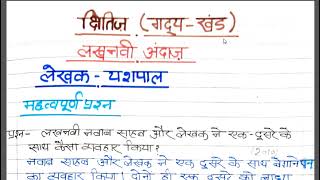 क्षितिज (गद्य-खंड)
लखनवी अंदाज़
लेखक - यशपाल
महत्वपूर्ण प्रश्न
प्रश्न- लखनवी नवाब साहब और लेखक ने एक-दूसरे के
साथ कैसा व्यवहार किया?
नवाब साहब और लेखक ने एक दूसरे के साथ
का व्यवहार किया। दोनों ही एक दूसरे को